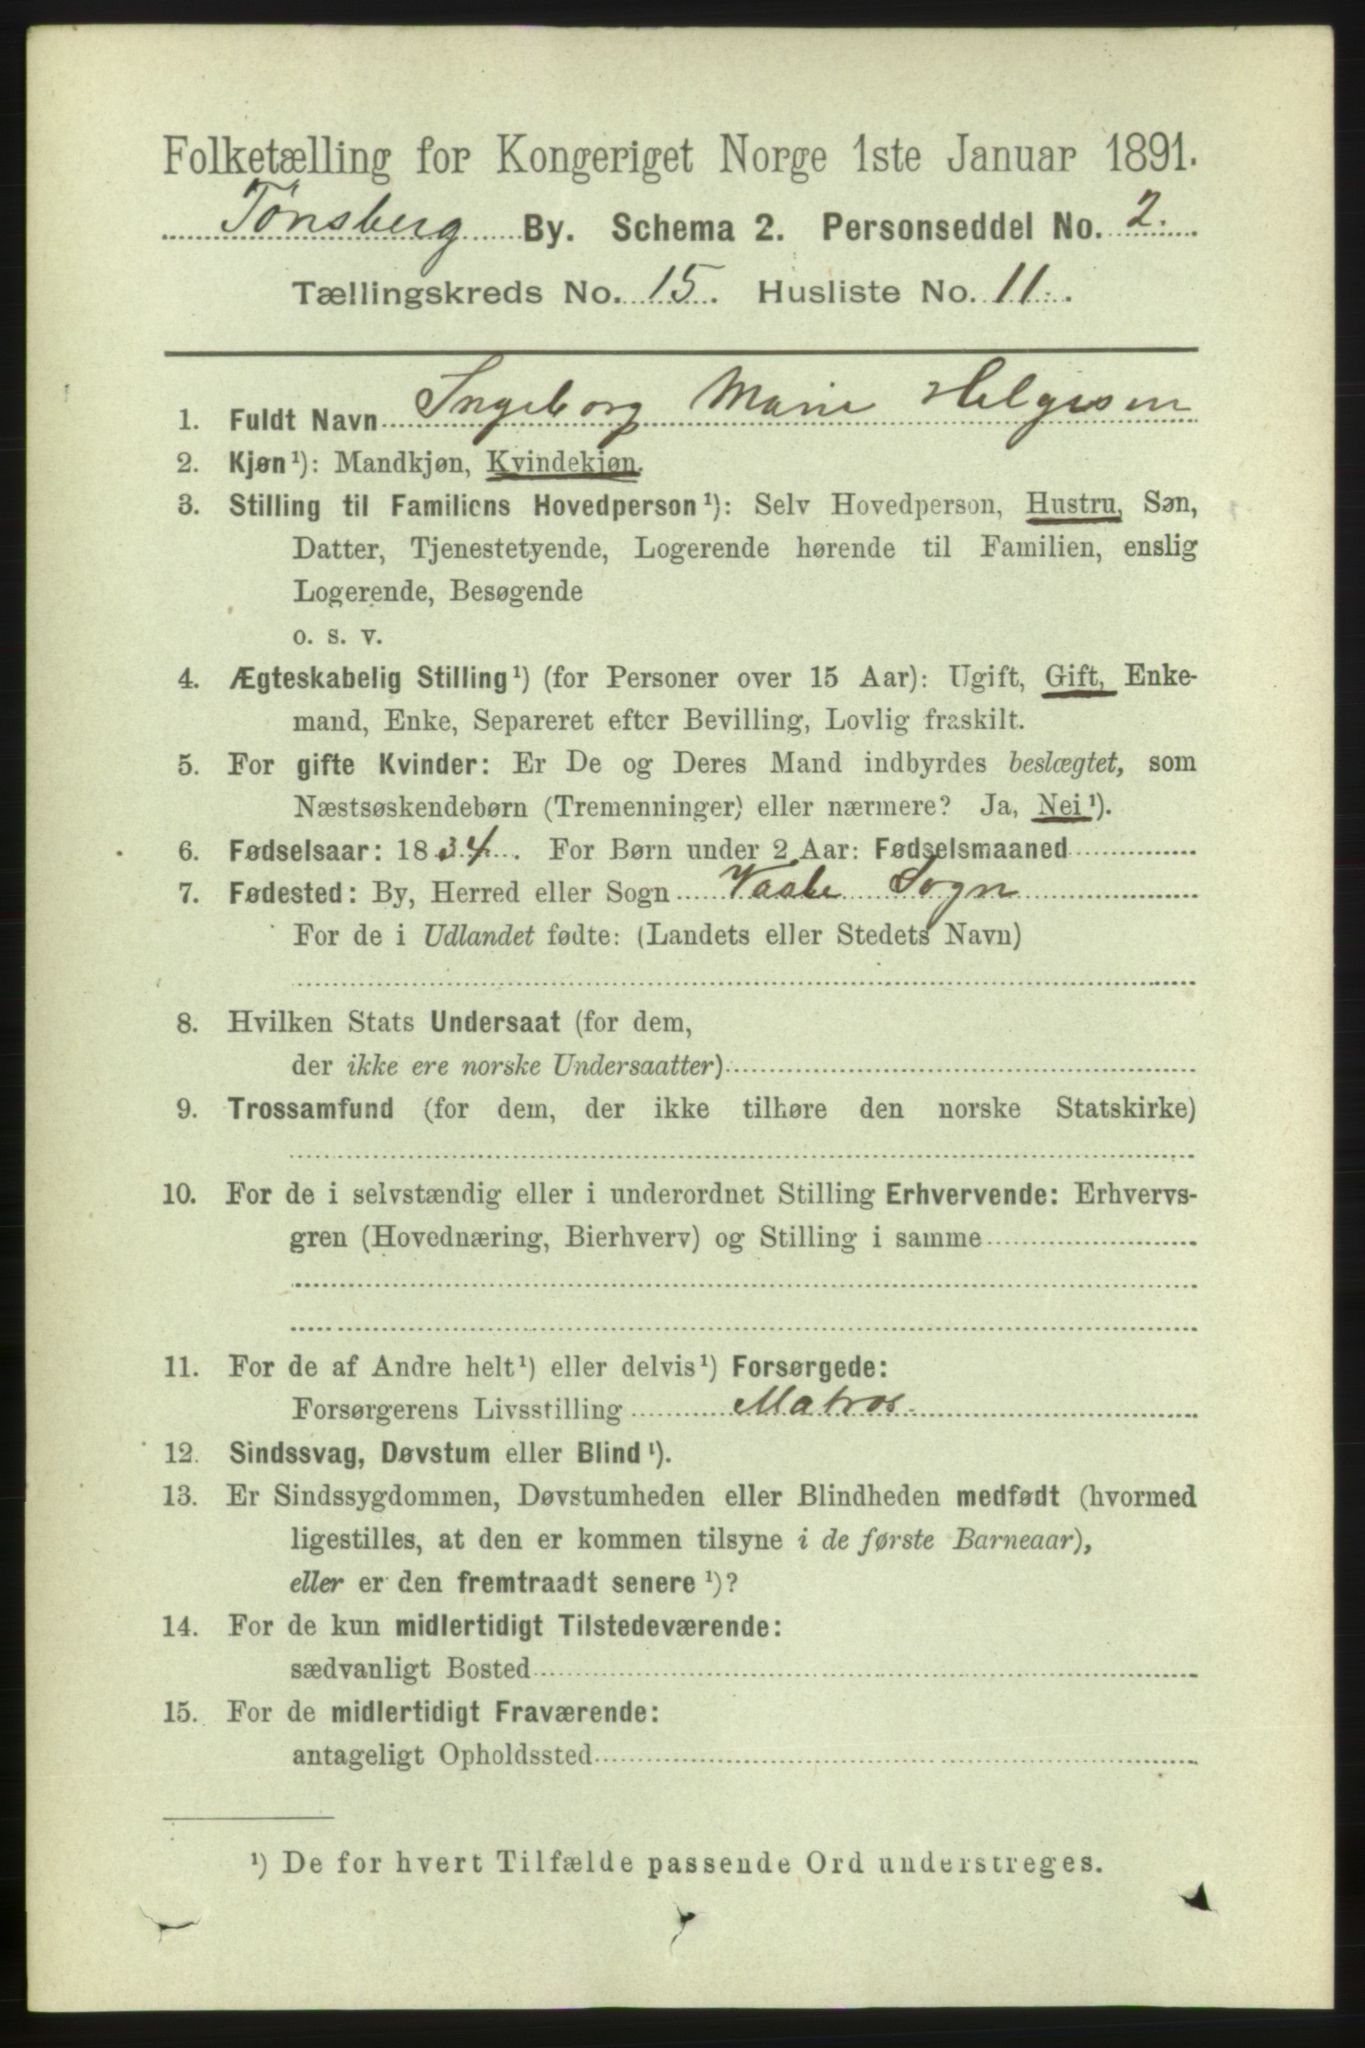 Folketælling for Kongeriget Norge 1ste Januar 1891.
Tønsberg By. Schema 2. Personseddel No. 2.
Tællingskreds No. 15. Husliste No. 11.
1. Fuldt Navn Ingeborg Marie Helgesen
2. Kjøn¹): Mandkjøn, Kvindekjøn.
3. Stilling til Familiens Hovedperson¹): Selv Hovedperson, Hustru, Søn,
Datter, Tjenestetyende, Logerende hørende til Familien, enslig
Logerende, Besøgende
o. s. v.
4. Ægteskabelig Stilling¹) (for Personer over 15 Aar): Ugift, Gift, Enke-
mand, Enke, Separeret efter Bevilling, Lovlig fraskilt.
5. For gifte Kvinder: Er De og Deres Mand indbyrdes beslægtet, som
Næstsøskendebørn (Tremenninger) eller nærmere? Ja, Nei¹).
6. Fødselsaar: 1834. For Børn under 2 Aar: Fødselsmaaned
7. Fødested: By, Herred eller Sogn Vaale Sogn
For de i Udlandet fødte: (Landets eller Stedets Navn)
8. Hvilken Stats Undersaat (for dem,
der ikke ere norske Undersaatter)
9. Trossamfund (for dem, der ikke tilhøre den norske Statskirke)
10. For de i selvstændig eller i underordnet Stilling Erhvervende: Erhvervs-
gren (Hovednæring, Bierhverv) og Stilling i samme
11. For de af Andre helt¹) eller delvis¹) Forsørgede:
Forsørgerens Livsstilling Matros.
12. Sindssvag, Døvstum eller Blind¹).
13. Er Sindssygdommen, Døvstumheden eller Blindheden medfødt (hvormed
ligestilles, at den er kommen tilsyne i de første Barneaar),
eller er den fremtraadt senere¹)?
14. For de kun midlertidigt Tilstedeværende:
sædvanligt Bosted
15. For de midlertidigt Fraværende:
antageligt Opholdssted
¹) De for hvert Tilfælde passende Ord understreges.